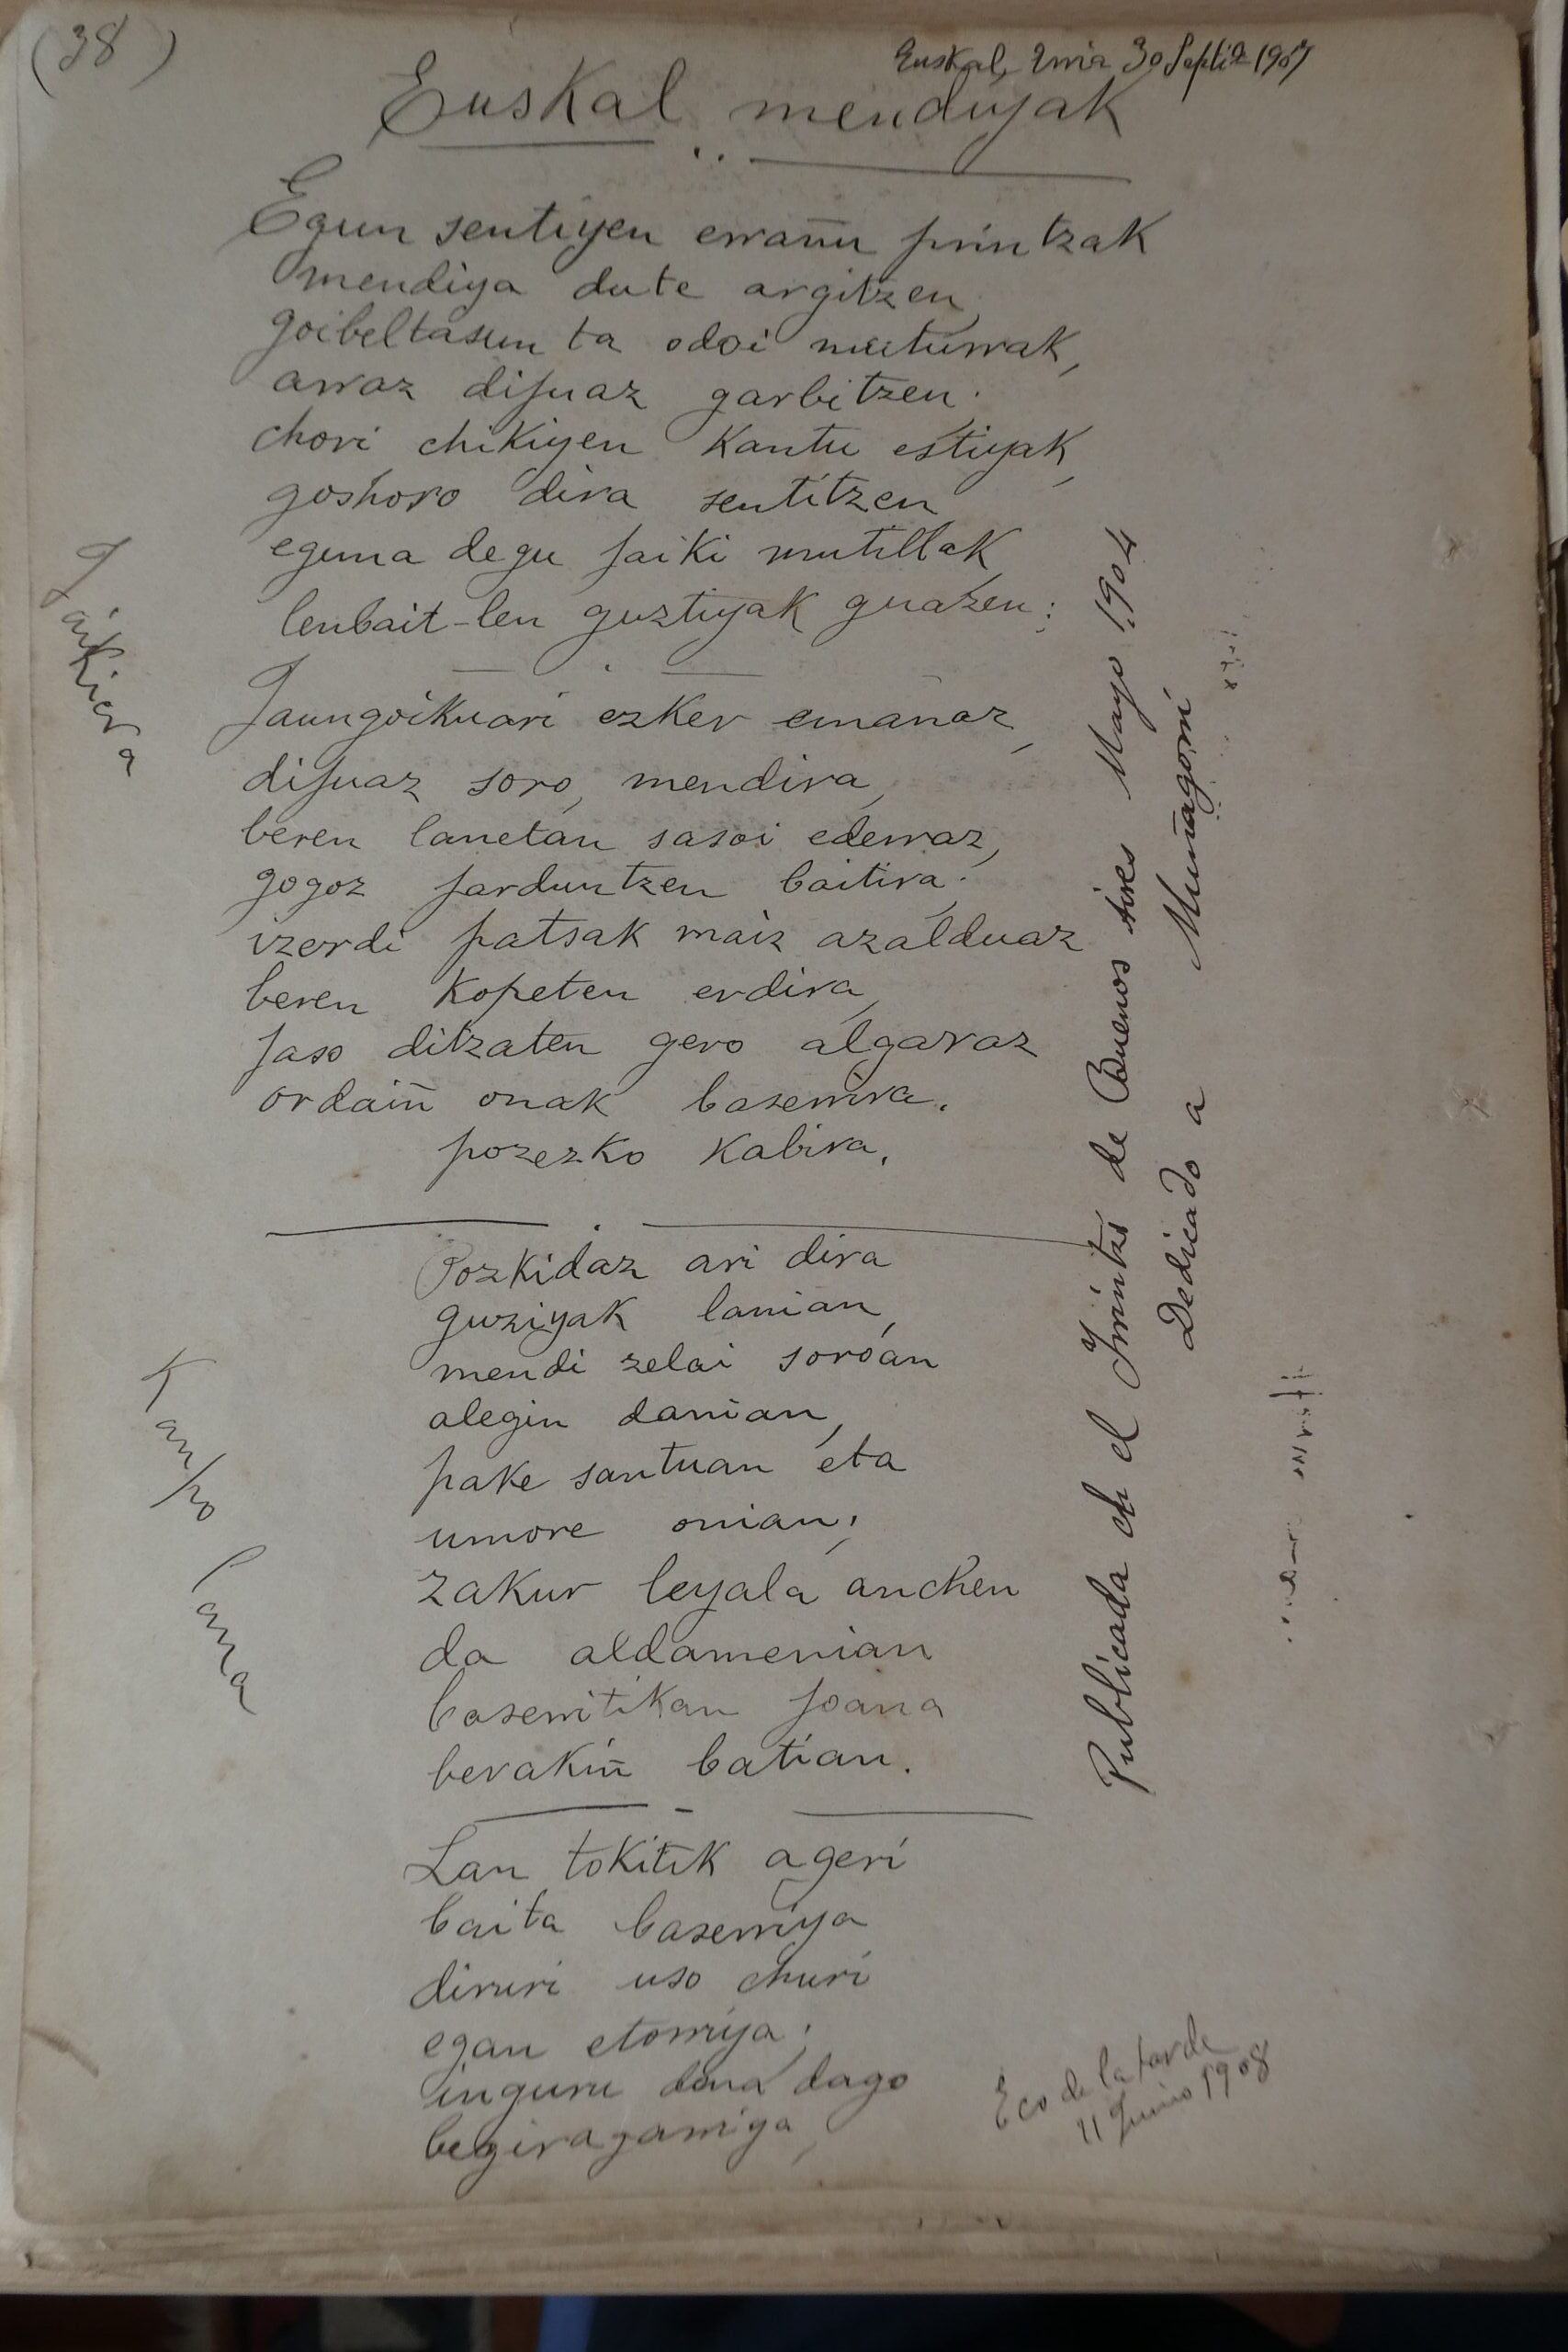 (38)
Euskal, Erria 30 Septie 1907
Euskal mendiyak
Egun sentiyen errañu printzak
mendiya dute argitzen,
goibeltasun ta odoi muturrak,
arraz dijuaz garbitzen.
chori chikiyen kantu estiyak,
goshoro dira sentitzen
eguna degu jaiki mutillak,
lenbait-len guztiyak guazen;
Jaikiera
Jaungoikuari ezker emanaz,
dijuaz soro, mendira,
beren lanetan sasoi ederraz,
gogoz jarduntzen baitira.
izerdi patsak maiz azalduaz
beren kopeten erdira,
jaso ditzaten gero algaraz
ordaiñ onak baserrira.
pozezko kabira.
Pozkidaz ari dira
guziyak lanian,
mendi zelai soroan
alegin danian,
pake santuan eta
umore onian;
zakur leyala anchen
da aldamenian
baserritikan joana
berakiñ batian.
Kanpo lana
Lan tokitik ageri
baita baserriya
diruri uso churi
egan etorriya;
inguru dana dago
begiragarriya,
Publicada en el Irrintzi de Buenos Aires Mayo 1904
Dedicado a Muñagorri
Eco de la tarde
11 Junio 1908